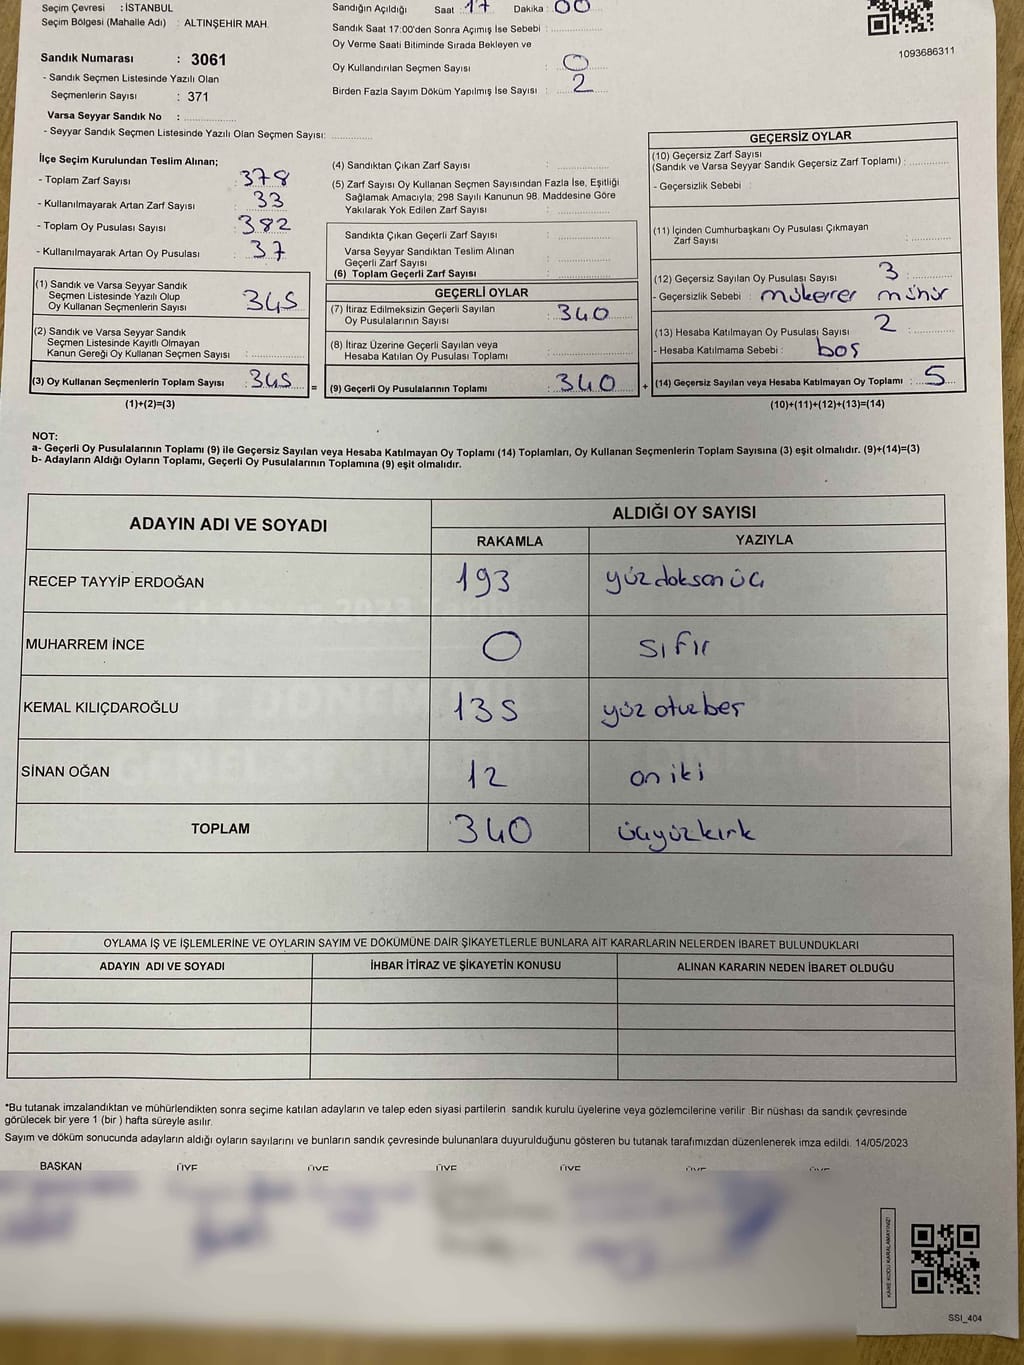 Seçim Çevresi : İSTANBUL
Seçim Bölgesi (Mahalle Adı) : ALTINŞEHİR MAH.
Sandık Numarası : 3061
- Sandık Seçmen Listesinde Yazılı Olan
Seçmenlerin Sayısı : 371
Varsa Seyyar Sandık No :
- Seyyar Sandık Seçmen Listesinde Yazılı Olan Seçmen Sayısı:
Sandığın Açıldığı Saat : 17 Dakika : 00
Sandık Saat 17:00'den Sonra Açımış İse Sebebi :
Oy Verme Saati Bitiminde Sırada Bekleyen ve
Oy Kullandırılan Seçmen Sayısı : 0
Birden Fazla Sayım Döküm Yapılmış İse Sayısı : 2
1093686311
İlçe Seçim Kurulundan Teslim Alınan;
- Toplam Zarf Sayısı : 378
- Kullanılmayarak Artan Zarf Sayısı : 33
- Toplam Oy Pusulası Sayısı : 382
- Kullanılmayarak Artan Oy Pusulası : 37
(1) Sandık ve Varsa Seyyar Sandık
Seçmen Listesinde Yazılı Olup
Oy Kullanan Seçmenlerin Sayısı : 345
(2) Sandık ve Varsa Seyyar Sandık
Seçmen Listesinde Kayıtlı Olmayan
Kanun Gereği Oy Kullanan Seçmen Sayısı :
(3) Oy Kullanan Seçmenlerin Toplam Sayısı : 345 =
(1)+(2)=(3)
(4) Sandıktan Çıkan Zarf Sayısı :
(5) Zarf Sayısı Oy Kullanan Seçmen Sayısından Fazla İse, Eşitliği
Sağlamak Amacıyla; 298 Sayılı Kanunun 98. Maddesine Göre
Yakılarak Yok Edilen Zarf Sayısı :
Sandıkta Çıkan Geçerli Zarf Sayısı :
Varsa Seyyar Sandıktan Teslim Alınan
Geçerli Zarf Sayısı :
(6) Toplam Geçerli Zarf Sayısı :
GEÇERLİ OYLAR
(7) İtiraz Edilmeksizin Geçerli Sayılan
Oy Pusulalarının Sayısı : 340
(8) İtiraz Üzerine Geçerli Sayılan veya
Hesaba Katılan Oy Pusulası Toplamı :
(9) Geçerli Oy Pusulalarının Toplamı : 340 +
GEÇERSİZ OYLAR
(10) Geçersiz Zarf Sayısı
(Sandık ve Varsa Seyyar Sandık Geçersiz Zarf Toplamı) :
- Geçersizlik Sebebi :
(11) İçinden Cumhurbaşkanı Oy Pusulası Çıkmayan
Zarf Sayısı :
(12) Geçersiz Sayılan Oy Pusulası Sayısı : 3
- Geçersizlik Sebebi : mükerrer mühür
(13) Hesaba Katılmayan Oy Pusulası Sayısı : 2
- Hesaba Katılmama Sebebi : boş
(14) Geçersiz Sayılan veya Hesaba Katılmayan Oy Toplamı : 5
(10)+(11)+(12)+(13)=(14)
NOT:
a- Geçerli Oy Pusulalarının Toplamı (9) ile Geçersiz Sayılan veya Hesaba Katılmayan Oy Toplamı (14) Toplamları, Oy Kullanan Seçmenlerin Toplam Sayısına (3) eşit olmalıdır. (9)+(14)=(3)
b- Adayların Aldığı Oyların Toplamı, Geçerli Oy Pusulalarının Toplamına (9) eşit olmalıdır.
ADAYIN ADI VE SOYADI ALDIĞI OY SAYISI
RAKAMLA YAZIYLA
RECEP TAYYİP ERDOĞAN 193 yüzdoksanüç
MUHARREM İNCE 0 sıfır
KEMAL KILIÇDAROĞLU 135 yüz otuzbeş
SİNAN OĞAN 12 on iki
TOPLAM 340 üçyüzkırk
OYLAMA İŞ VE İŞLEMLERİNE VE OYLARIN SAYIM VE DÖKÜMÜNE DAİR ŞİKAYETLERLE BUNLARA AİT KARARLARIN NELERDEN İBARET BULUNDUKLARI
ADAYIN ADI VE SOYADI İHBAR İTİRAZ VE ŞİKAYETİN KONUSU ALINAN KARARIN NEDEN İBARET OLDUĞU
*Bu tutanak imzalandıktan ve mühürlendikten sonra seçime katılan adayların ve talep eden siyasi partilerin sandık kurulu üyelerine veya gözlemcilerine verilir. Bir nüshası da sandık çevresinde
görülecek bir yere 1 (bir ) hafta süreyle asılır.
Sayım ve döküm sonucunda adayların aldığı oyların sayılarını ve bunların sandık çevresinde bulunanlara duyurulduğunu gösteren bu tutanak tarafımızdan düzenlenerek imza edildi. 14/05/2023
BAŞKAN ÜYE ÜYE ÜYE ÜYE
KARE KODU KARALAMAYINIZ!
SSI_404